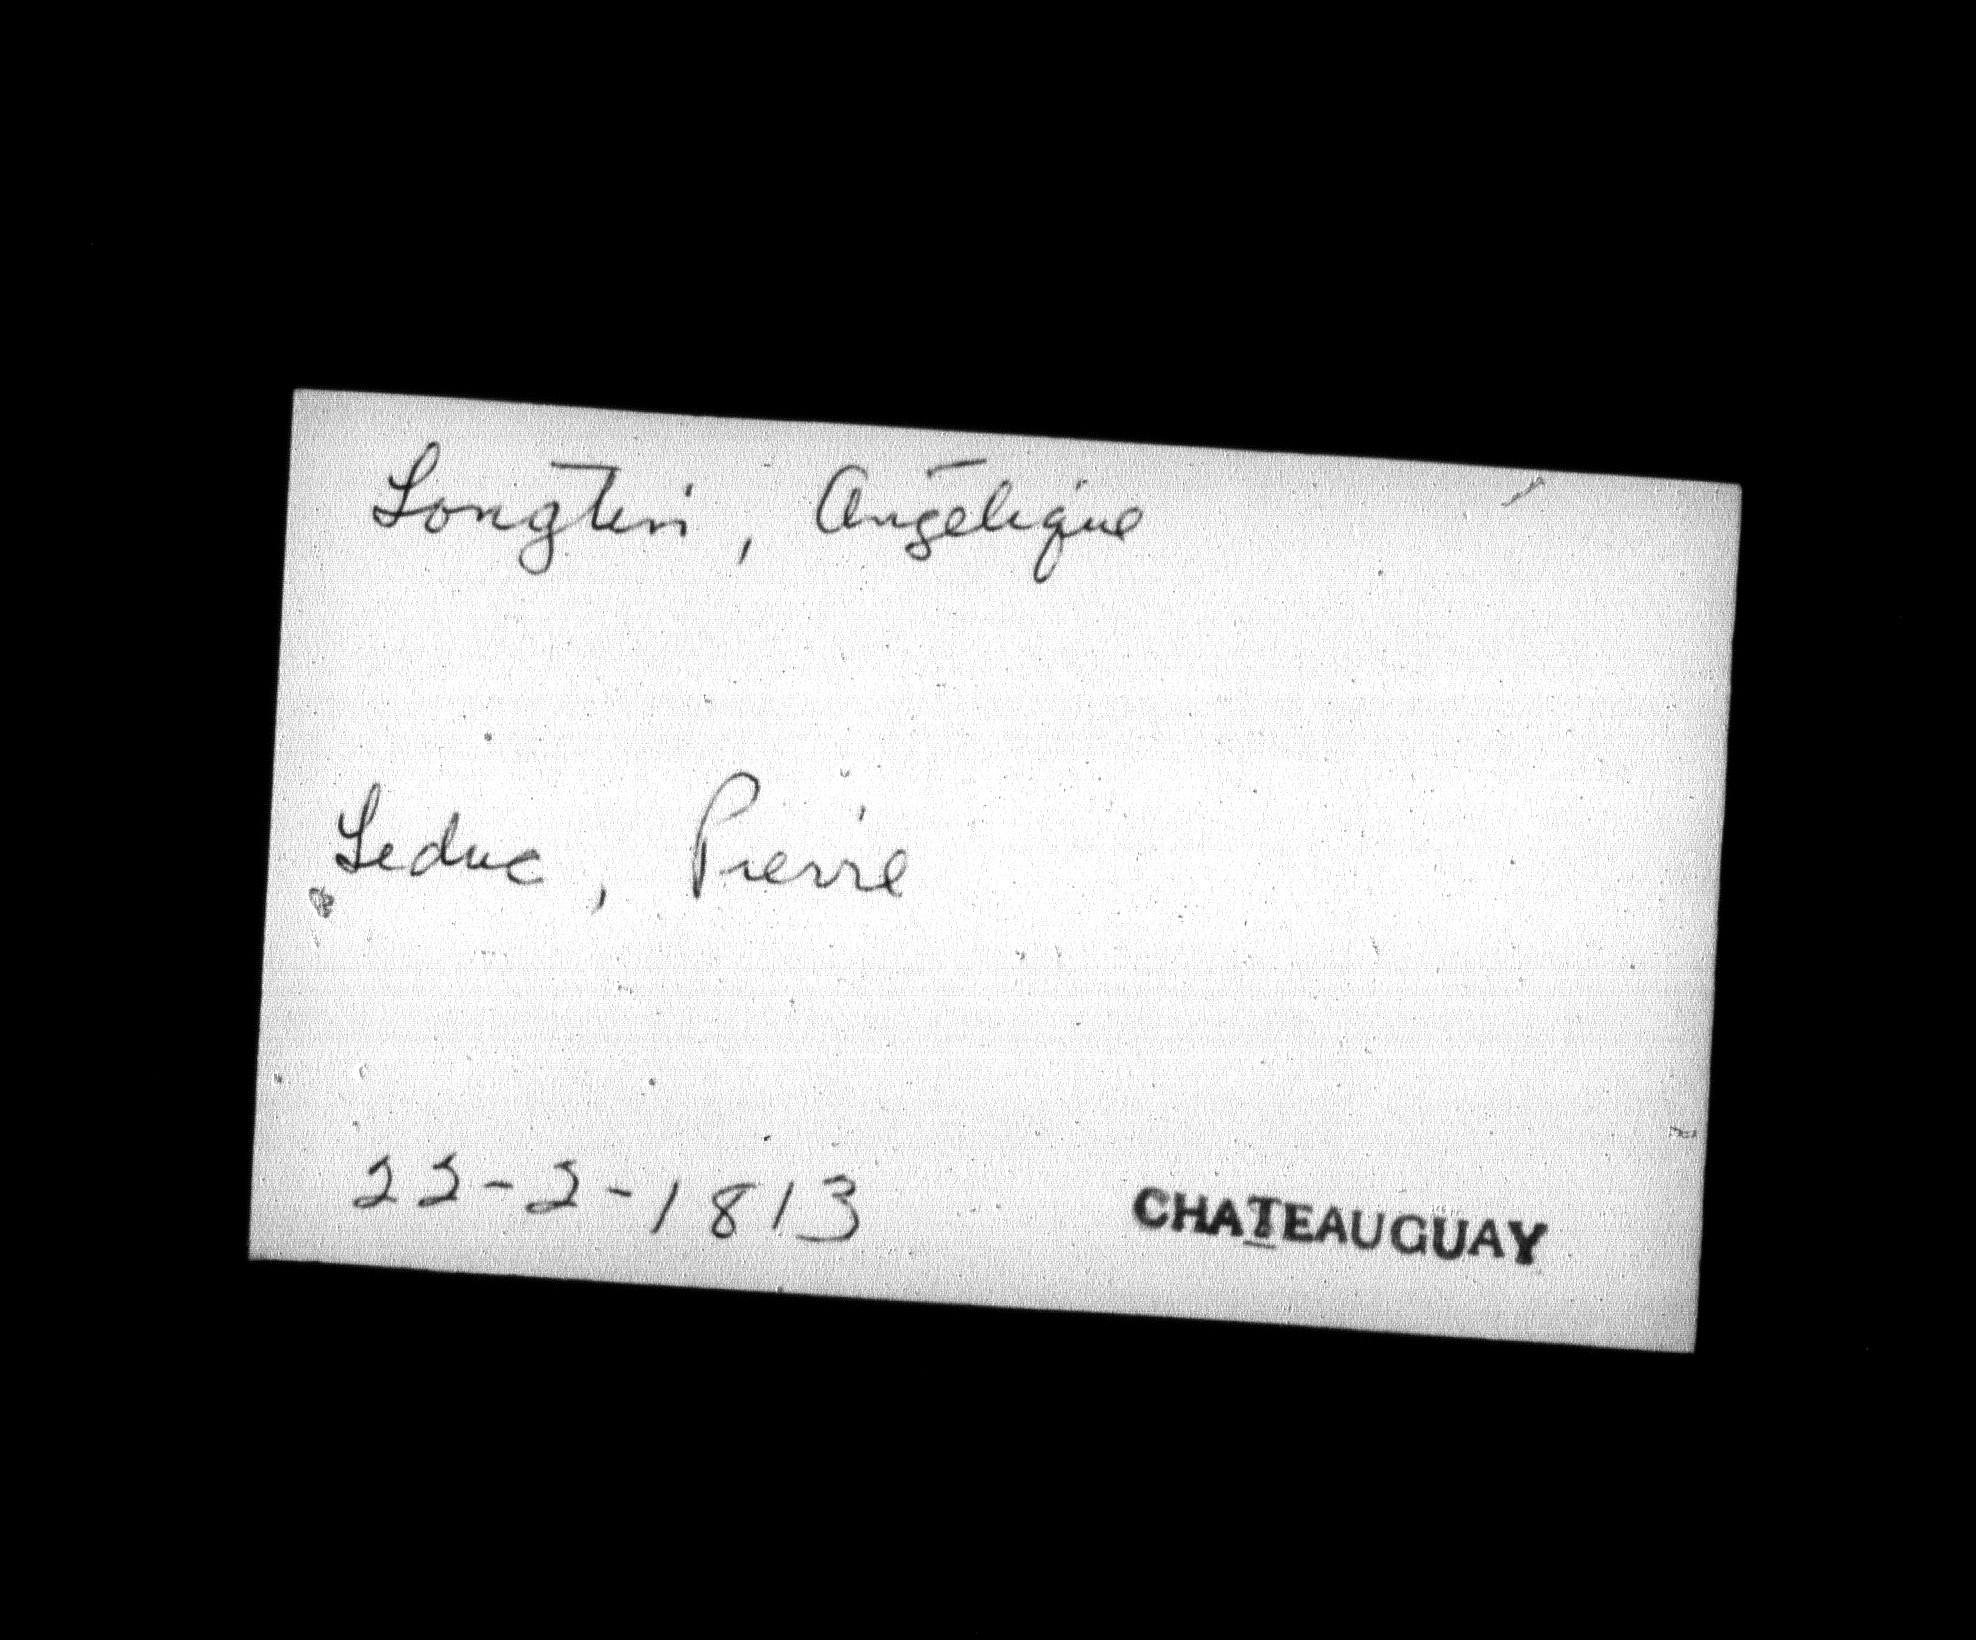 Longtin, Angélique
Leduc, Pierre
22-2-1813 CHATEAUGUAY